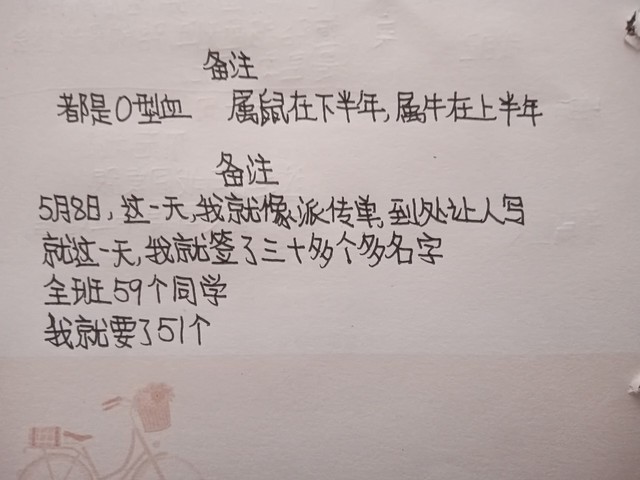 备注
都是O型血 属鼠在下半年,属牛在上半年
备注
5月8日,这一天,我就像派传单,到处让人写
就这一天,我就签了三十多个多名字
全班59个同学
我就要了51个